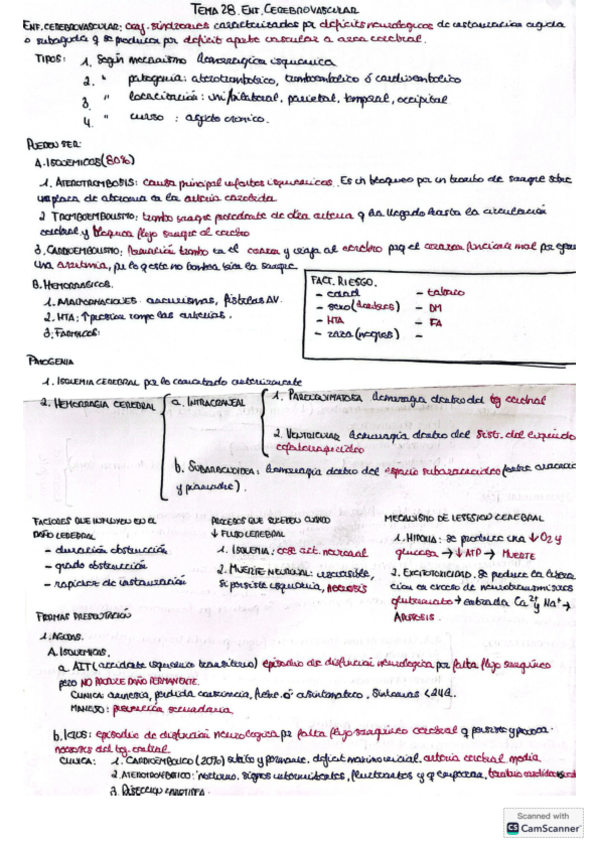 TEMA 28. ENF. CEREBROVASCULAR
ENF. CEREBROVASCULAR: conj. síndromes caracterizados por déficits neurológicos de instauración aguda
o subaguda q se producen por déficit aporte vascular a area cerebral.
TIPOS: 1. Según mecanismo hemorragica isquemica
2. " patogenia: aterotrombotico, tromboembolico ó cardioembolico
3 " localización: uni/bilateral, parietal, temporal, occipital
4. " curso: agudo cronico.
PUEDEN SER:
A. ISQUEMICOS (80%)
1. ATEROTROMBOSIS: causa principal infartos isquemicos. Es un bloqueo por un trombo de sangre sobre
una placa de ateroma en la arteria carotida
2 TROMBOEMBOLISMO: trombo sangre procedente de otra arteria q ha llegado hasta la circulación
cerebral y bloquea flujo sangre al cerebro
3. CARDIOEMBOLISMO: formación trombo en el corazon y viaja al cerebro pq el corazon funciona mal por
una arritmia, por lo q este no bombea bien la sangre
B. HEMORRAGICOS.
1. MALFORMACIONES: aneurismas, fístulas AV.
2. HTA: ↑ presion rompe las arterias.
3. FARMACOS:
FACT. RIESGO.
- edad - tabaco
- sexo (hombres) - DM
- HTA - FA
- raza (negros) -
PATOGENIA
1. ISQUEMIA CEREBRAL por lo comentado anteriormente
2. HEMORRAGIA CEREBRAL a. INTRACRANEAL 1. PARENQUIMATOSA hemorragia dentro del tej cerebral
2. VENTRICULAR hemorragia dentro del sist. del liquido
cefalorraquideo
b. SUBARACNOIDEA: hemorragia dentro del espacio subaracnoideo (entre
y piamadre).
FACTORES QUE INFLUYEN EN EL
DAÑO CEREBRAL
- duración obstrucción
- grado obstrucción
- rapidez de instauración
PROCESOS QUE SUCEDEN CUANDO
↓ FLUJO CEREBRAL
1. ISQUEMIA: cese act. neuronal
2. MUERTE NEURONAL: irreversible,
si persiste isquemia, NECROSIS
MECANISMO DE LESION CEREBRAL
1. HIPOXIA: se produce una ↓ O2 y
glucosa → ↓ ATP → MUERTE
2. EXCITOTOXICIDAD: se produce la libera
cion en exceso de neurotransmisores
glutamato → entrada Ca2+ y Na+ →
APOPTOSIS.
FORMAS PRESENTACIÓN
1. AGUDAS.
A. ISQUEMICAS.
a. AIT (accidente isquemico transitorio) episodio de disfunción neurologica por falta flujo sanguineo
pero NO PRODUCE DAÑO PERMANENTE.
CLINICA: amnesia, perdida consciencia, ó asintomatico, sintomas <24h.
MANEJO: prevención secundaria
b. ICTUS: episodio de disfunción neurologica por falta flujo sanguineo cerebral q persiste y provoca
necrosis del tej. cerebral.
CLINICA: 1. CARDIOEMBOLICO (20%) subito y permanente, deficit maximo inicial. arteria cerebral media
2. ATEROTROMBOTICO: nocturno, signos intermitentes, fluctuantes y q empeoran,
3 DISECCION CAROTIDEA.
Scanned with
CS CamScanner